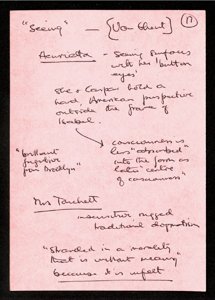 "Seeing" — [Van Ghent] 17
Henrietta - Seeing surfaces
with her 'button
eyes'
She & Caspar hold a
hard American perspective
outside the frame of
Isabel.
consciousness is
less "absorbed"
into the form as
later "centre
of consciousness"
"brilliant
fugitive
from Brooklyn"
Mrs Touchett
insensitive, rugged
traditional
"Stranded in a morality
that is without meaning"
because it is unfelt